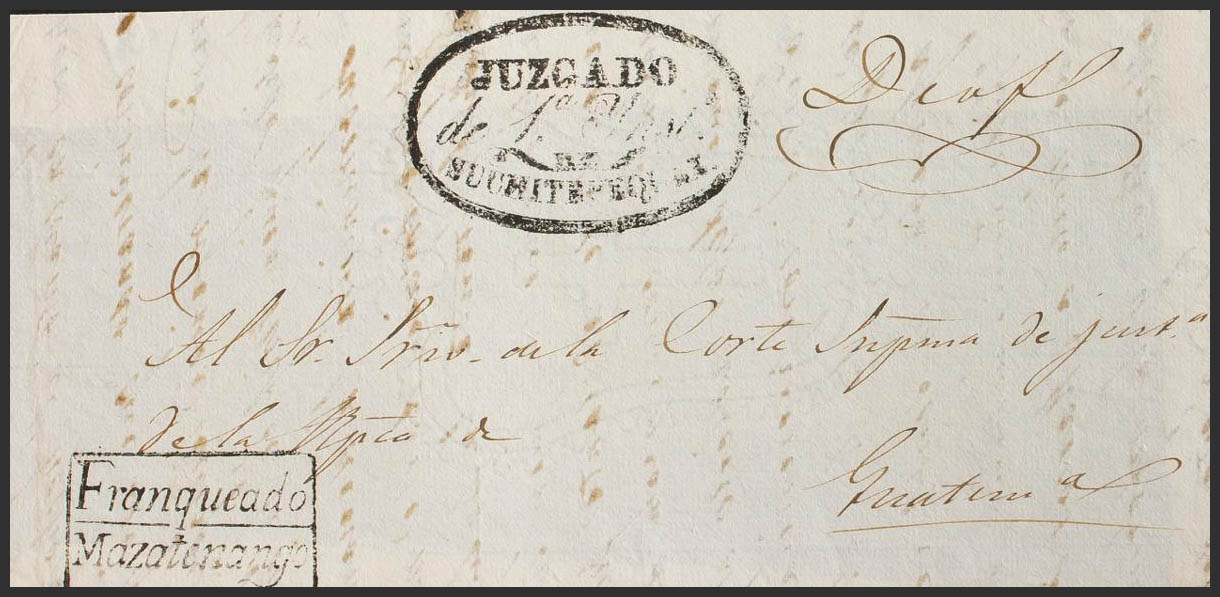 JUZGADO
de 1.ª Ynst.
DE
SUCHITEPEQUEZ
De of.
Al Sr. Srio. de la Corte Supma de just.a
de la Rpca de
Guatem a
Franqueado
Mazatenango